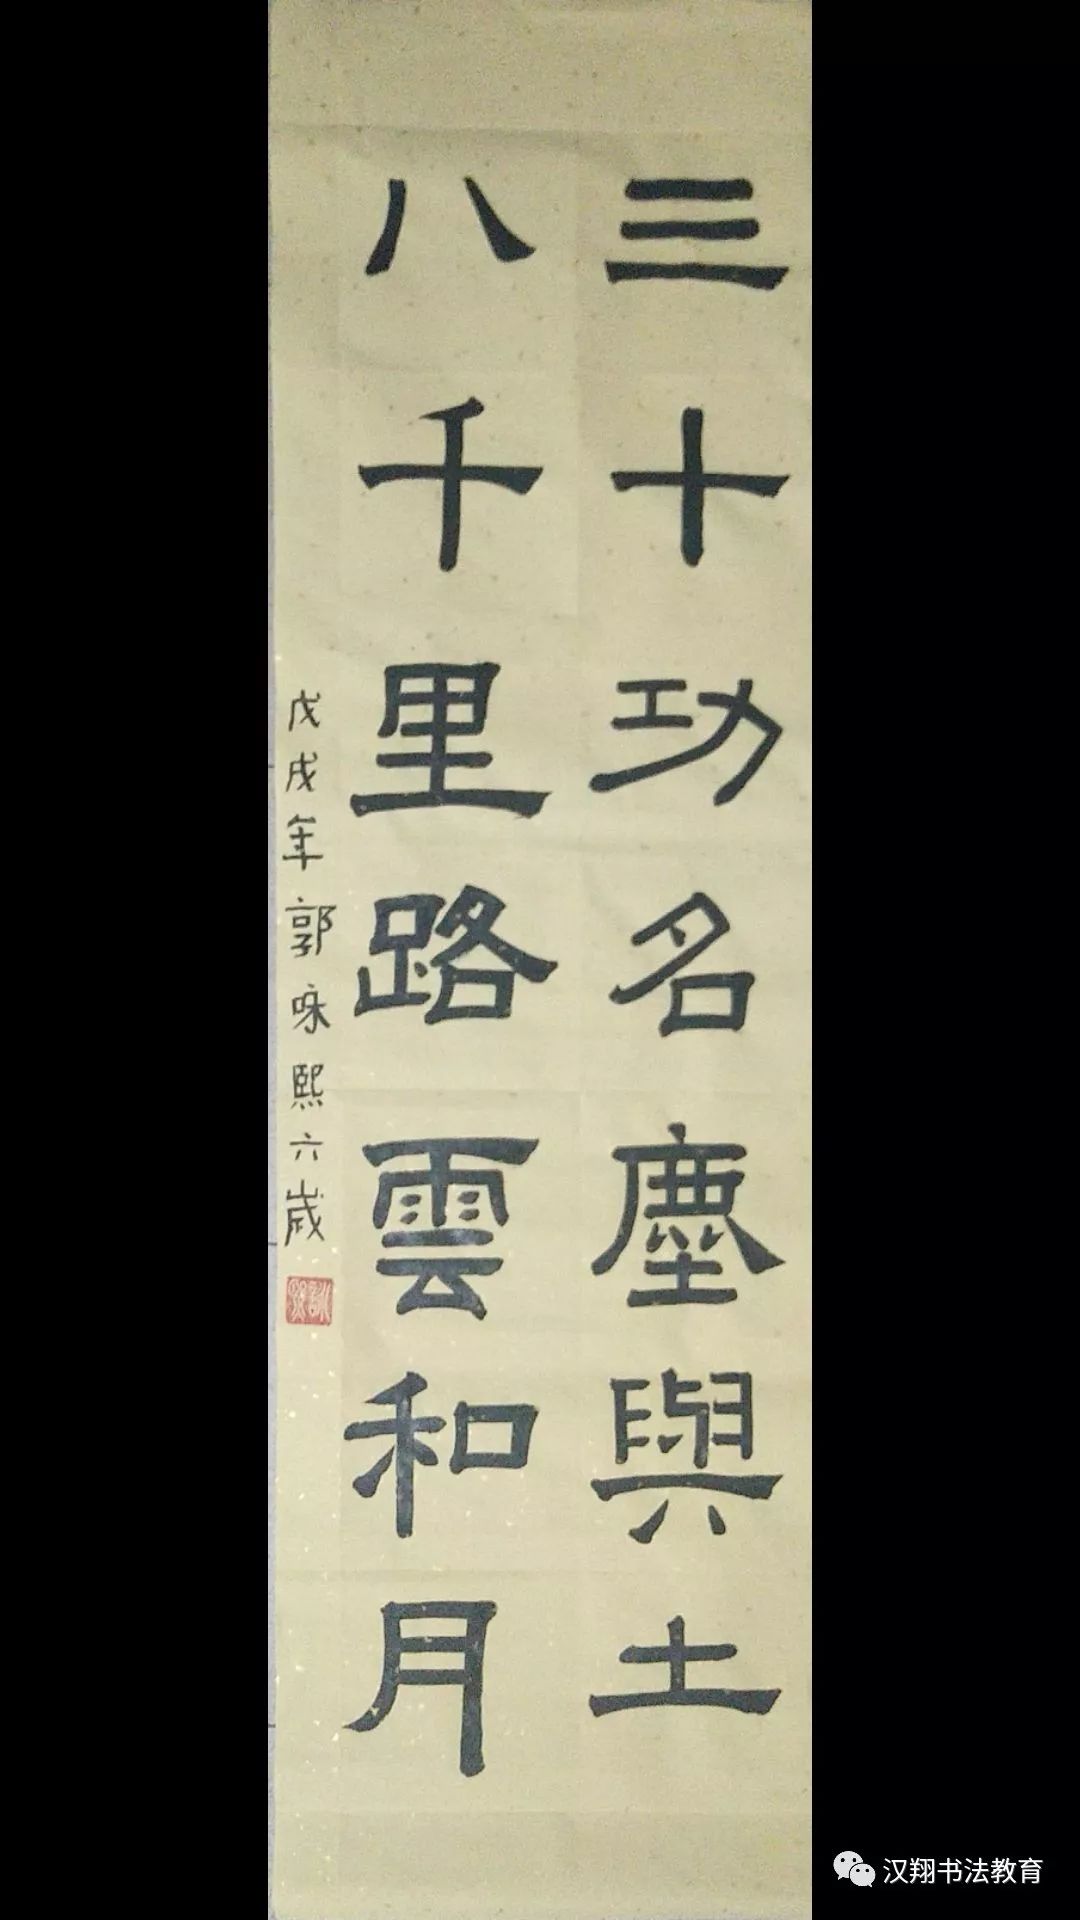 三十功名塵與土
八千里路雲和月
戊戌年郭咏熙六歲
詠熙
汉翔书法教育